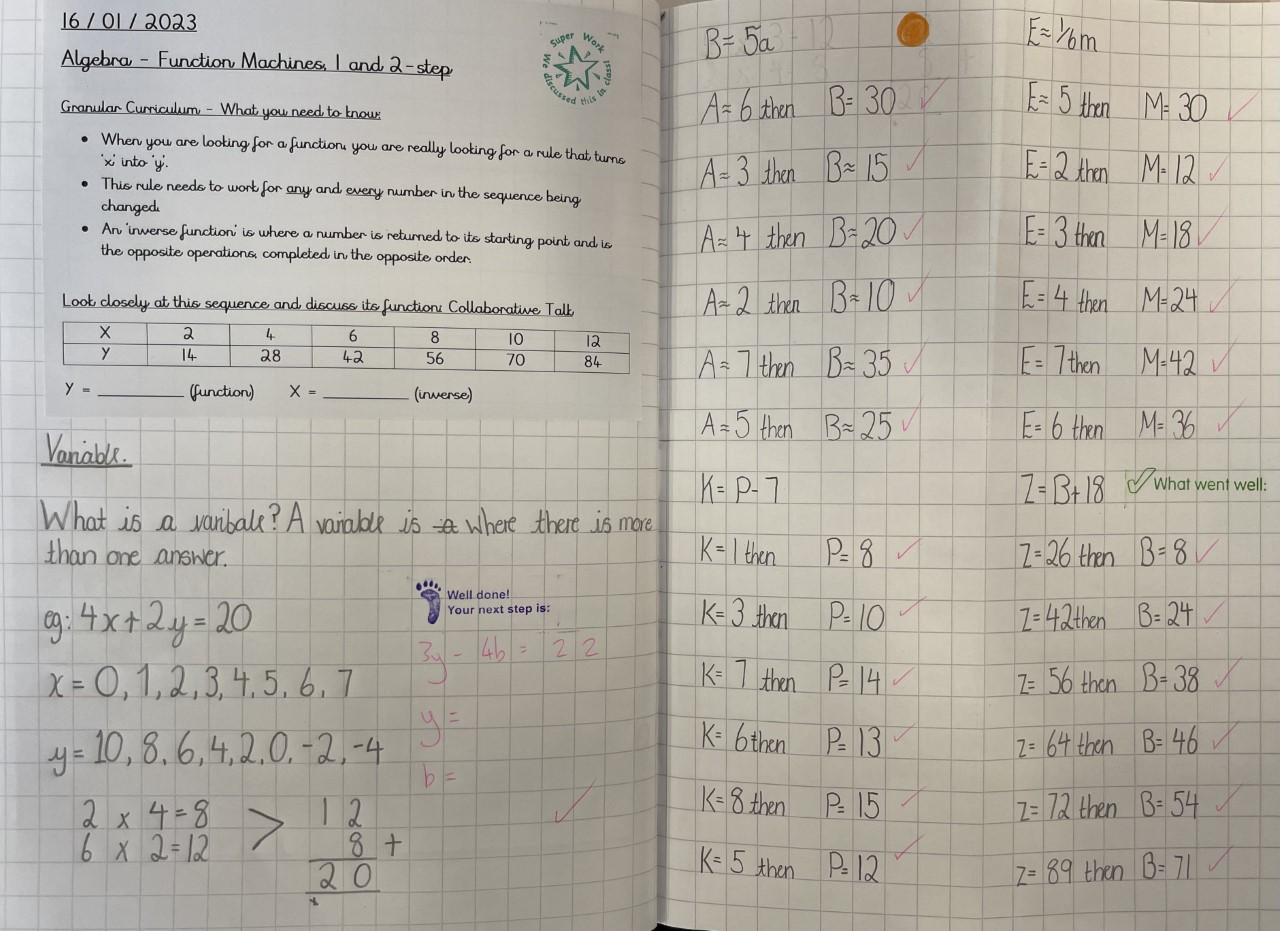 16 / 01 / 2023
Algebra - Function Machines, 1 and 2-step
Super Work
We discussed this in class!
Granular Curriculum - What you need to know:
• When you are looking for a function, you are really looking for a rule that turns
'x' into 'y'.
• This rule needs to work for any and every number in the sequence being
changed.
• An 'inverse function' is where a number is returned to its starting point and is
the opposite operations, completed in the opposite order.
Look closely at this sequence and discuss its function: Collaborative Talk
X 2 4 6 8 10 12
Y 14 28 42 56 70 84
Y = __________ (function) X = __________ (inverse)
Variable.
What is a varibale? A variable is a where there is more
than one answer.
eg: 4x + 2y = 20
x = 0, 1, 2, 3, 4, 5, 6, 7
y = 10, 8, 6, 4, 2, 0, -2, -4
2 x 4 = 8 > 1 2
6 x 2 = 12 8 +
2 0
Well done!
Your next step is:
3y - 4b = 22
y =
b =
B = 5a
A = 6 then B = 30
A = 3 then B = 15
A = 4 then B = 20
A = 2 then B = 10
A = 7 then B = 35
A = 5 then B = 25
K = P - 7
K = 1 then P = 8
K = 3 then P = 10
K = 7 then P = 14
K = 6 then P = 13
K = 8 then P = 15
K = 5 then P = 12
E = 1/6 m
E = 5 then M = 30
E = 2 then M = 12
E = 3 then M = 18
E = 4 then M = 24
E = 7 then M = 42
E = 6 then M = 36
Z = B + 18
What went well:
Z = 26 then B = 8
Z = 42 then B = 24
Z = 56 then B = 38
Z = 64 then B = 46
Z = 72 then B = 54
Z = 89 then B = 71